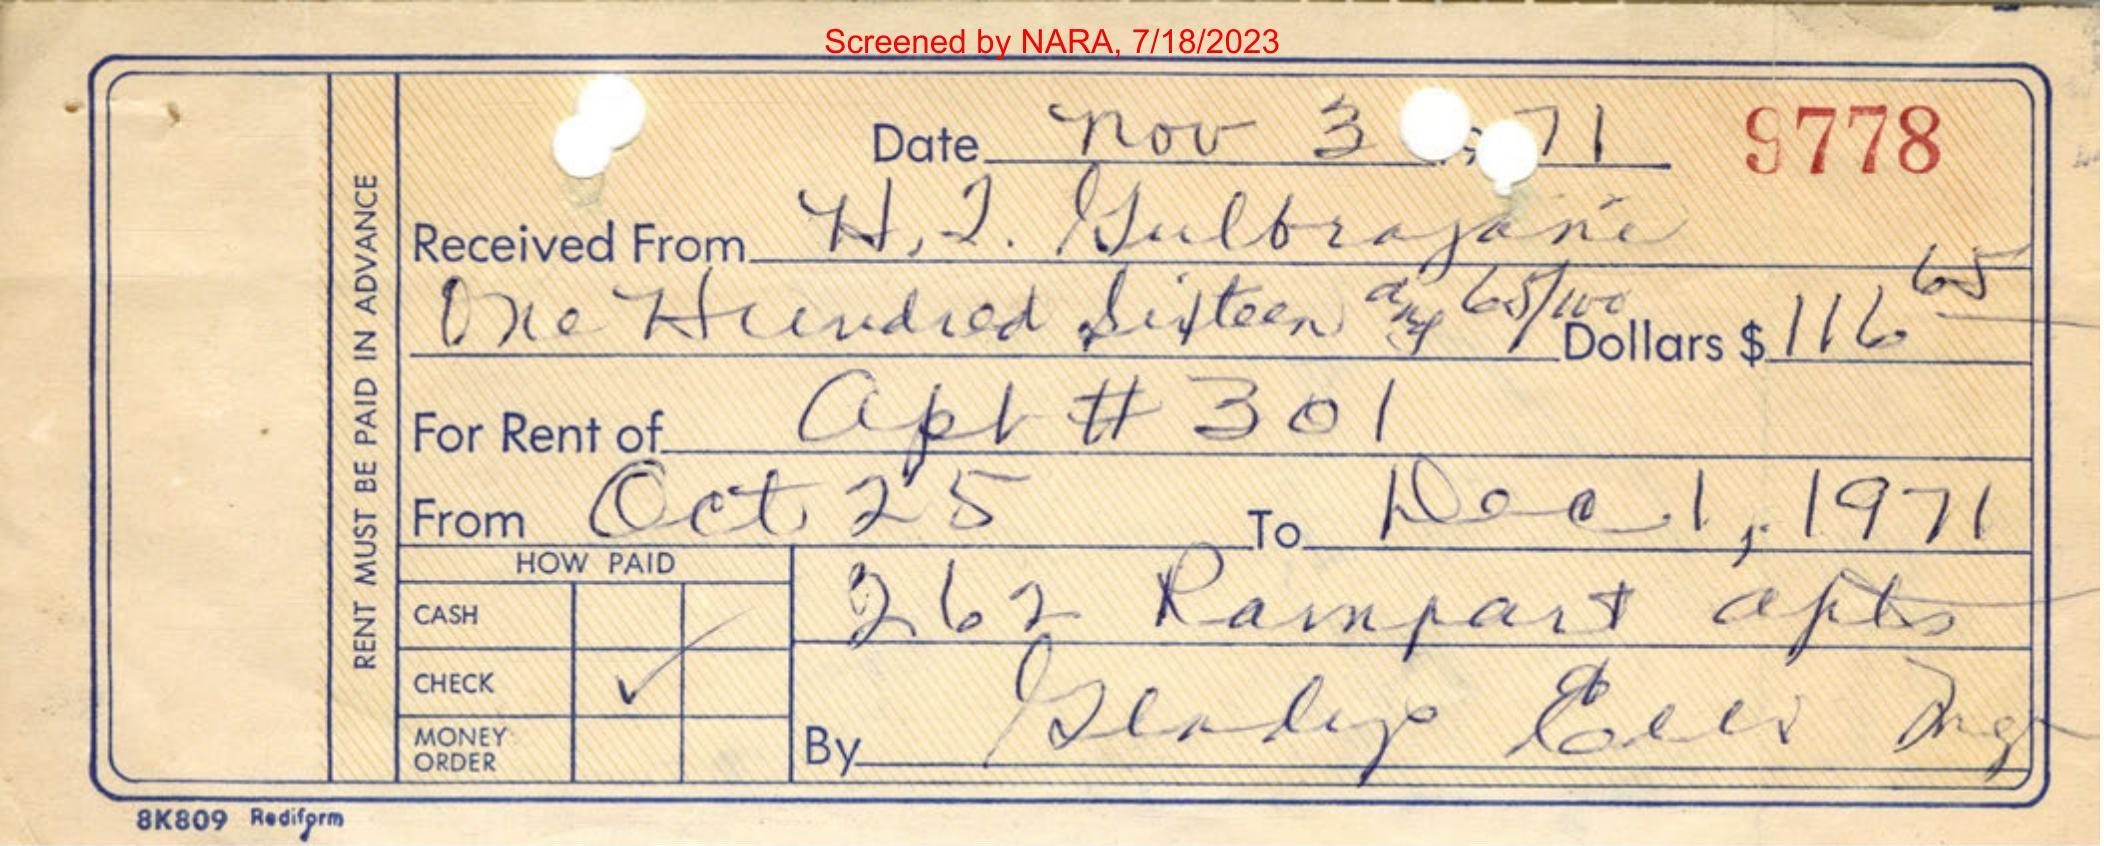 Screened by NARA, 7/18/2023
RENT MUST BE PAID IN ADVANCE
Date Nov 3 71 9778
Received From H. I.
One Hundred Sixteen and 65/100 Dollars $ 116 65
For Rent of Apt # 301
From Oct 25 To Dec 1, 1971
HOW PAID
262 Rampart apts
CASH
CHECK ✓
MONEY ORDER
By Gladys Mgr
8K809 Rediform